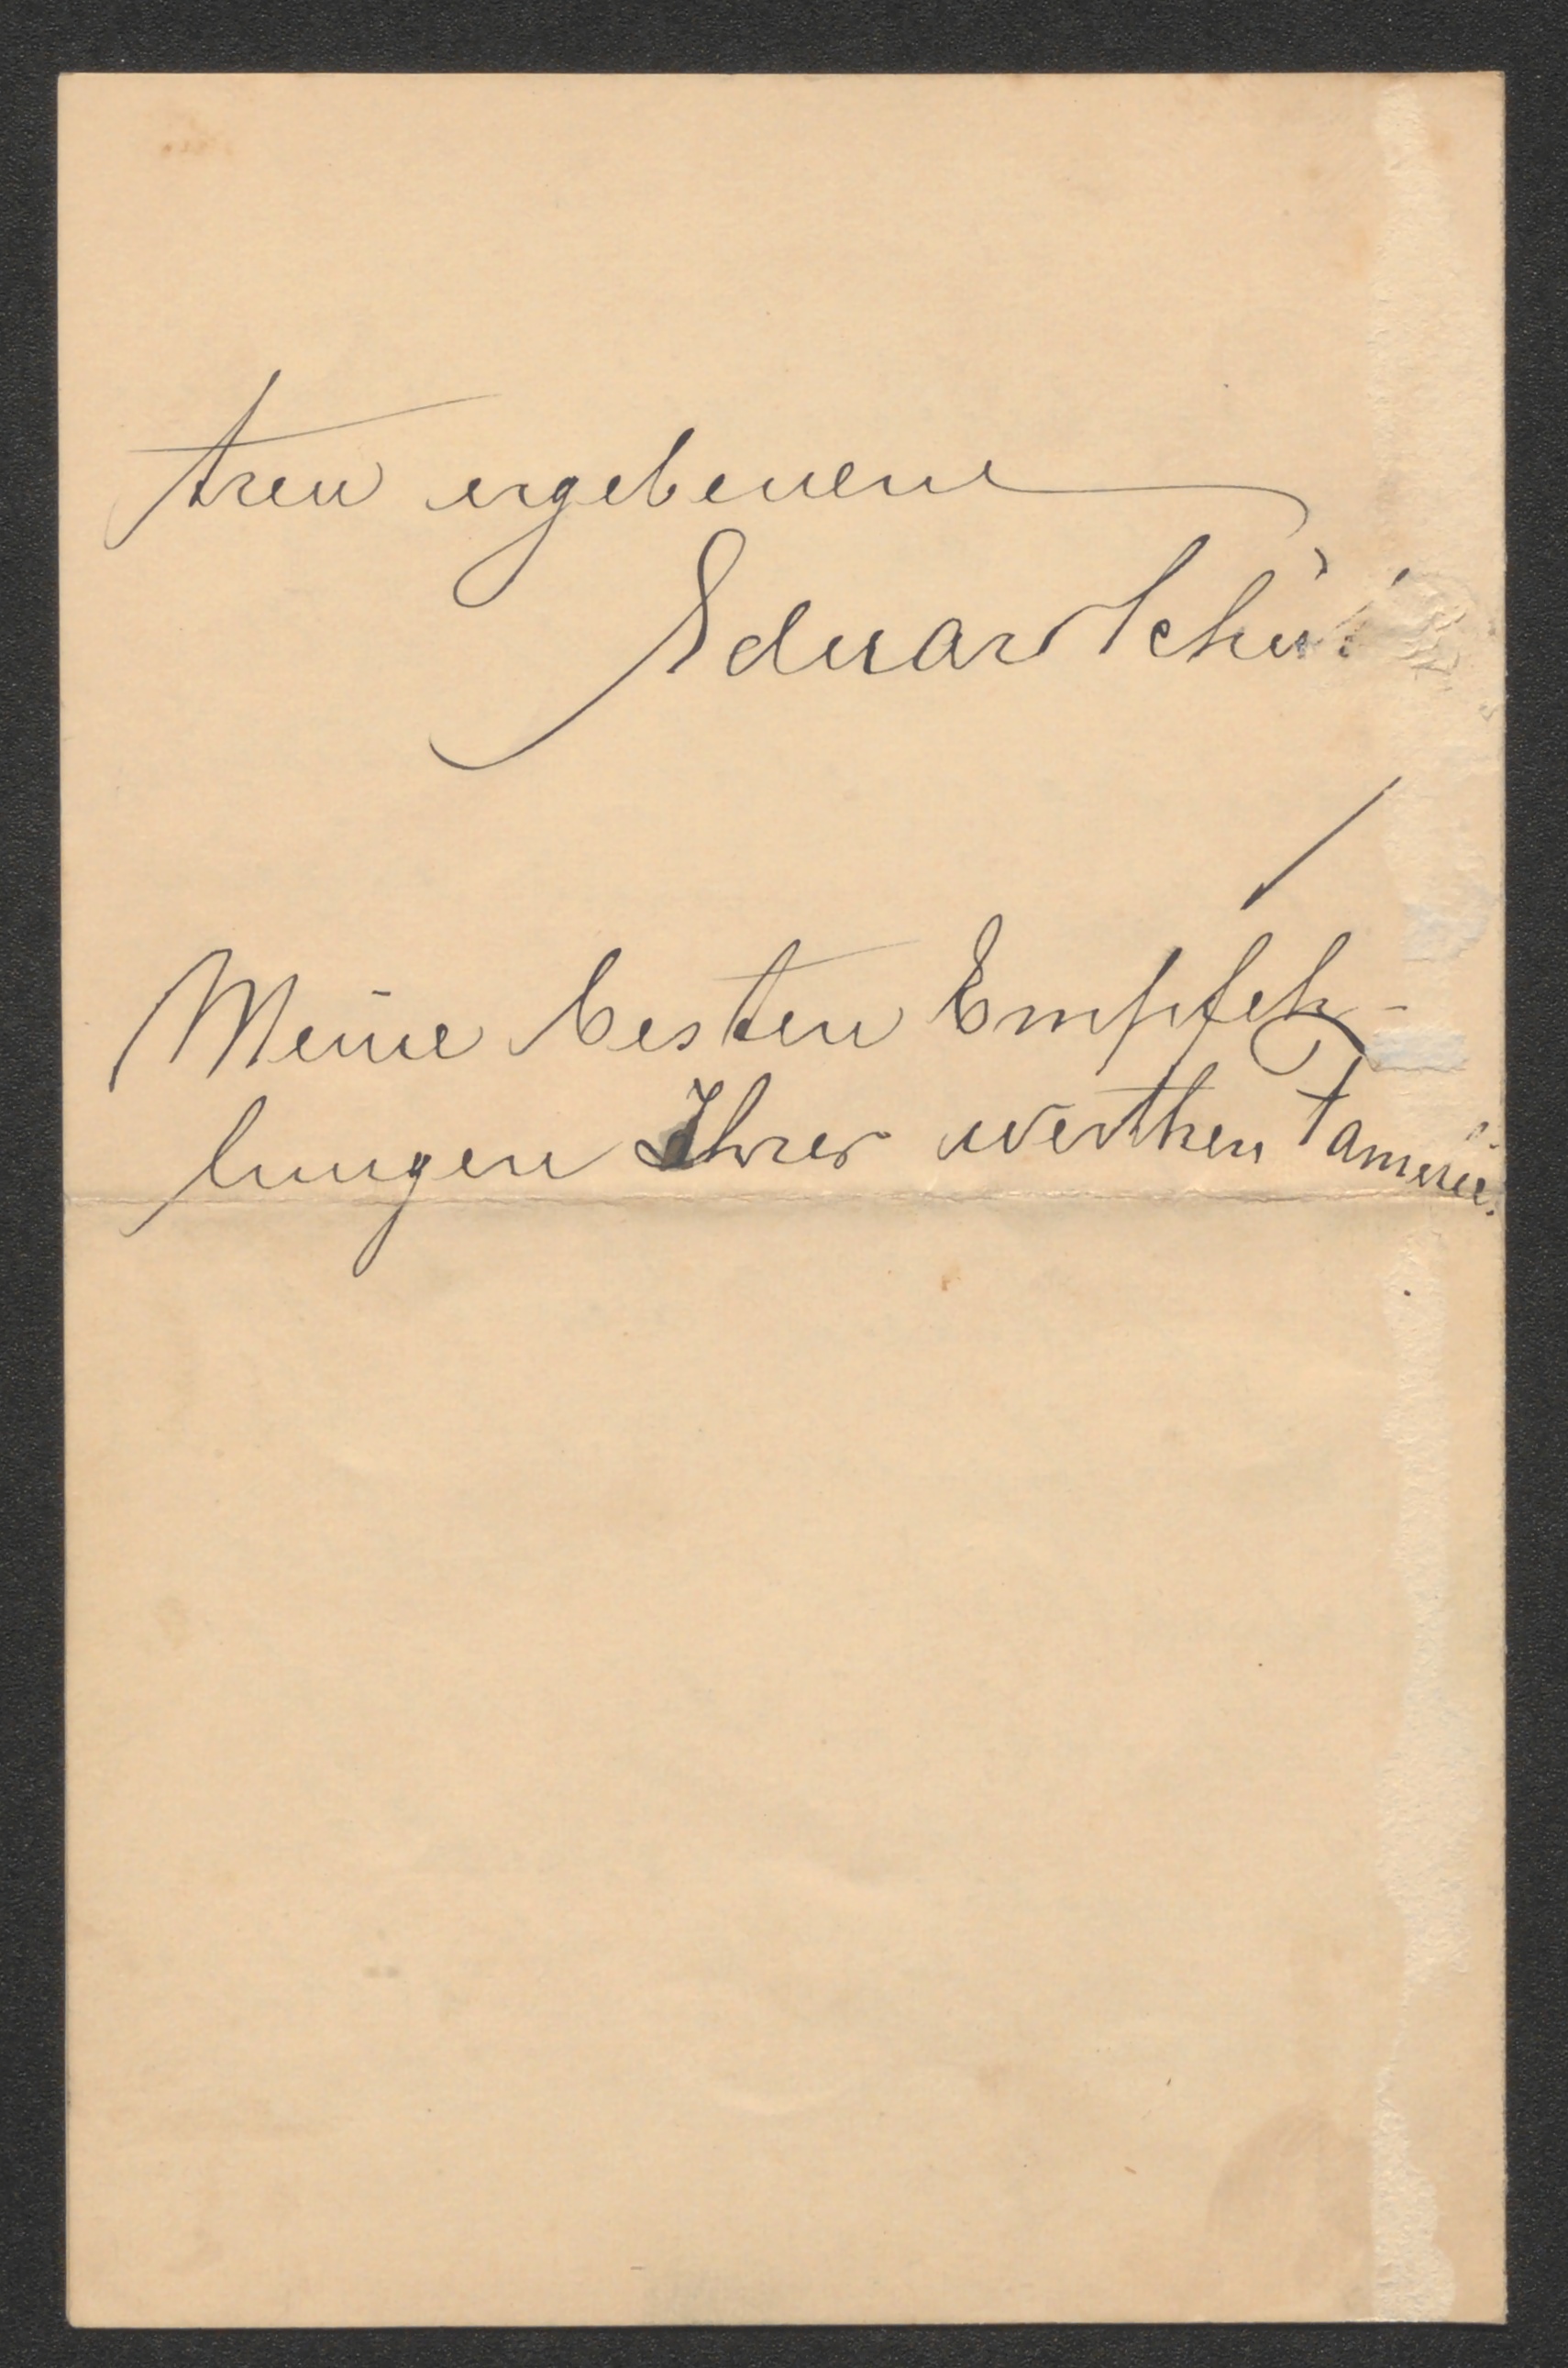 treu ergebenen
Eduard Schü
Meine besten Empfeh-
lungen Ihrer werthen Familie.